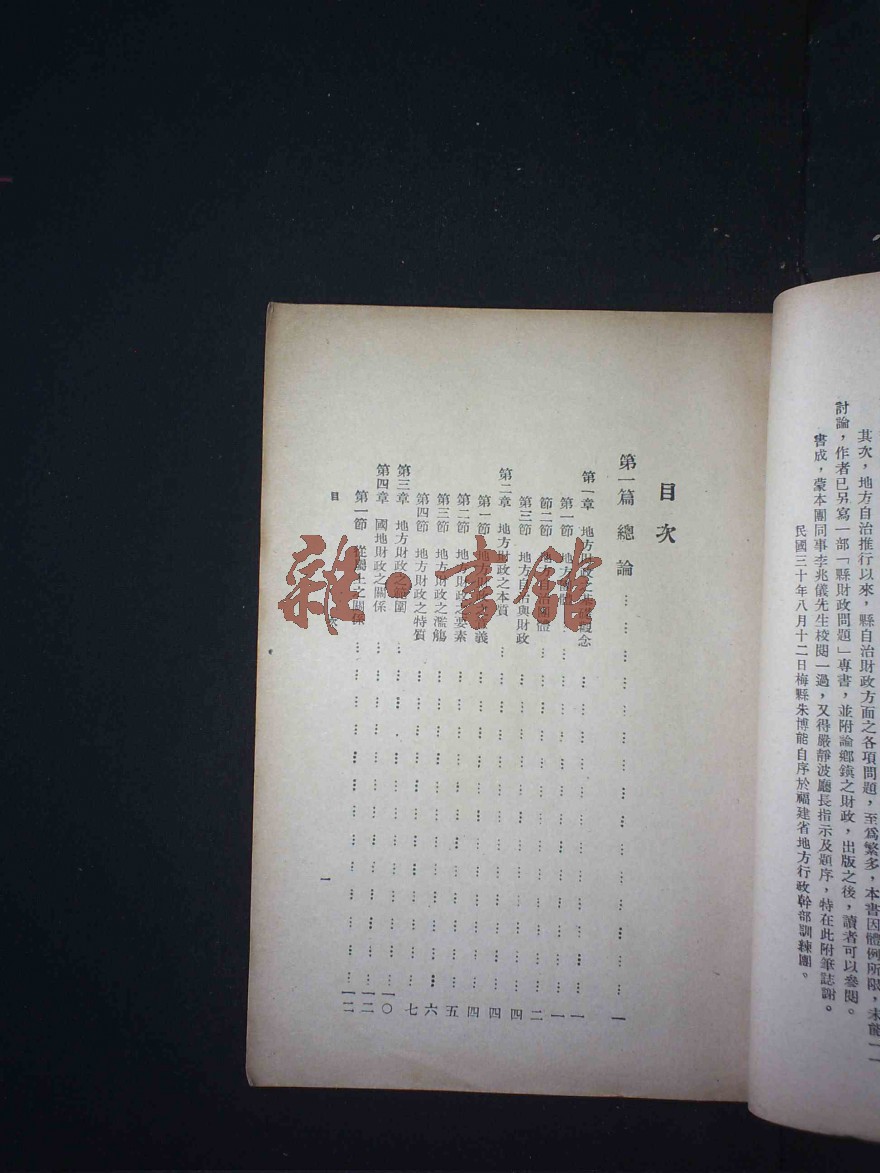 其次，地方自治推行以來，縣自治財政方面之各項問題，至爲繁多，本書因體例所限，未能一一
討論，作者已另寫一部「縣財政問題」專書，並附論鄉鎮之財政，出版之後，讀者可以參閱。
書成，蒙本團同事李兆儀先生校閱一過，又得嚴靜波廳長指示及題序，特在此附筆誌謝。
民國三十年八月十二日梅縣朱博能自序於福建省地方行政幹部訓練團。
目次
第一篇 總論 …………………… 一
第一章 地方財政概念 …………………… 一
第一節 地方團體 …………………… 一
節二節 地方自治團體 …………………… 二
第三節 地方自治與財政 …………………… 四
第二章 地方財政之本質 …………………… 四
第一節 地方財政之意義 …………………… 四
第二節 地方財政之要素 …………………… 五
第三節 地方財政之濫觴 …………………… 六
第四節 地方財政之特質 …………………… 七
第三章 地方財政之範圍 …………………… 一〇
第四章 國地財政之關係 …………………… 一二
第一節 從獨上之關係 …………………… 一二
目次
一
雜·書館